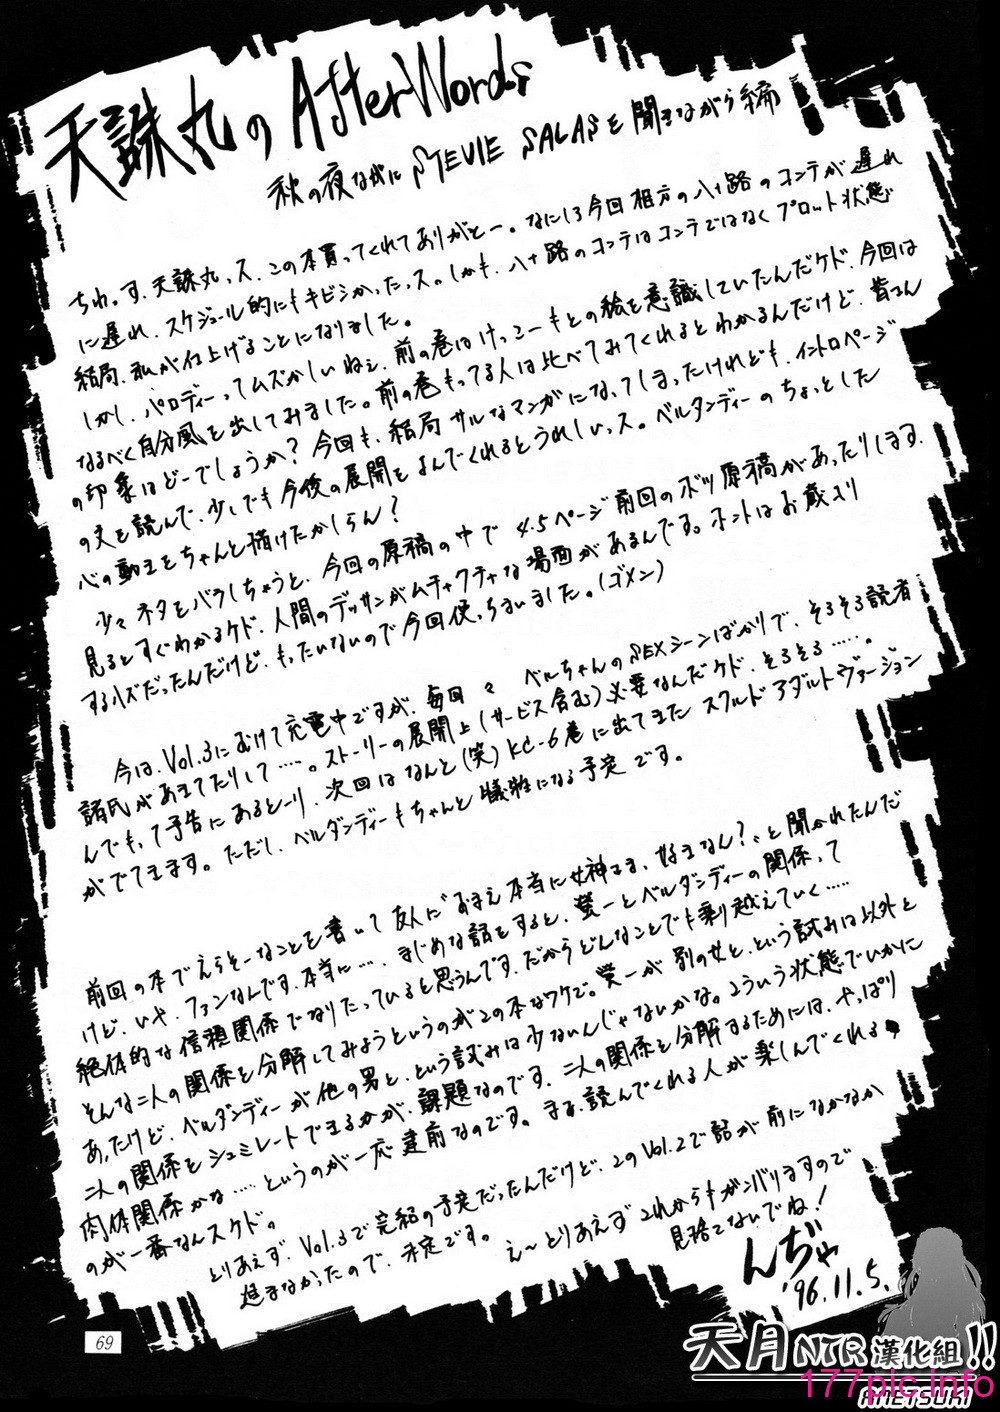 天誅丸の AfterWords
秋の夜ながに STEVIE SALASを聞きながら編
ちわっす、天誅丸っス、この本買ってくれてありがとー。なにしろ今回相方の八十路のコンテが遅れ
に遅れ、スケジュール的にもキビシかったっス。しかも、八十路のコンテはコンテではなくプロット状態
結局、私が仕上げることになりました。
しかし、パロディーってムズかしいねェ、前の巻はけっこーもとの絵を意識していたんだケド、今回は
なるべく自分風を出してみました。前の巻もってる人は比べてみてくれるとわかるんだけど、皆さん
の印象はどーでしょうか？今回も、結局サルなマンガになってしまったけれども、イントロページ
の文を読んで、少しでも今後の展開をよんでくれるとうれしいっス。ベルダンディーのちょっとした
心の動きをちゃんと描けたかしらん？
少々ネタをバラしちゃうと、今回の原稿の中で4.5ページ前回のボツ原稿があったりします。
見るとすぐわかるケド、人間のデッサンがムチャクチャな場面があるんです。ホントはお蔵入り
するハズだったんだけど、もったいないので今回使っちまいました。(ゴメン)
今は、Vol.3にむけて充電中ですが、毎回々 ベルちゃんのSEXシーンばかりで、そろそろ読者
諸氏があきてたりして……。ストーリーの展開上(サービス含む)必要なんだケド、そろそろ……。
んでもって予告にあるとーり、次回はなんと(笑)KC-6巻に出てきたスクルドアダルトヴァージョン
がでてきます。ただし、ベルダンディーもちゃんと犠牲になる予定です。
前回の本でえらそーなことを書いて友人に“おまえ本当に女神さま、好きなん？”と聞かれたんだ
けど、いや、ファンなんです、本当に…。まじめな話をすると、螢一とベルダンディーの関係って
絶体的な信頼関係でなりたっていると思うんです、だからどんなことでも乗り越えていく……
そんな二人の関係を分解してみようというのがこの本なワケで。螢一が別の女と、という試みは以外と
あったけど、ベルダンディーが他の男と、という試みは少ないんじゃないかな。こういう状態でいかに
二人の関係をシュミレートできるかが、課題なのです。二人の関係を分解するためには、やっぱり
肉体関係かな……というのが一応建前なのです。まぁ、読んでくれる人が楽しんでくれる
のが一番なんスケド。
とりあえず、Vol.3で完結の予定だったんだけど、このVol.2で話が前になかなか
進まなかったので、未定です。え～とりあえずこれからもガンバりますので
見捨てないでね！
んぢゃ
'96.11.5.
69
天月NTR漢化組!!
AMETSUKI
177pic.info